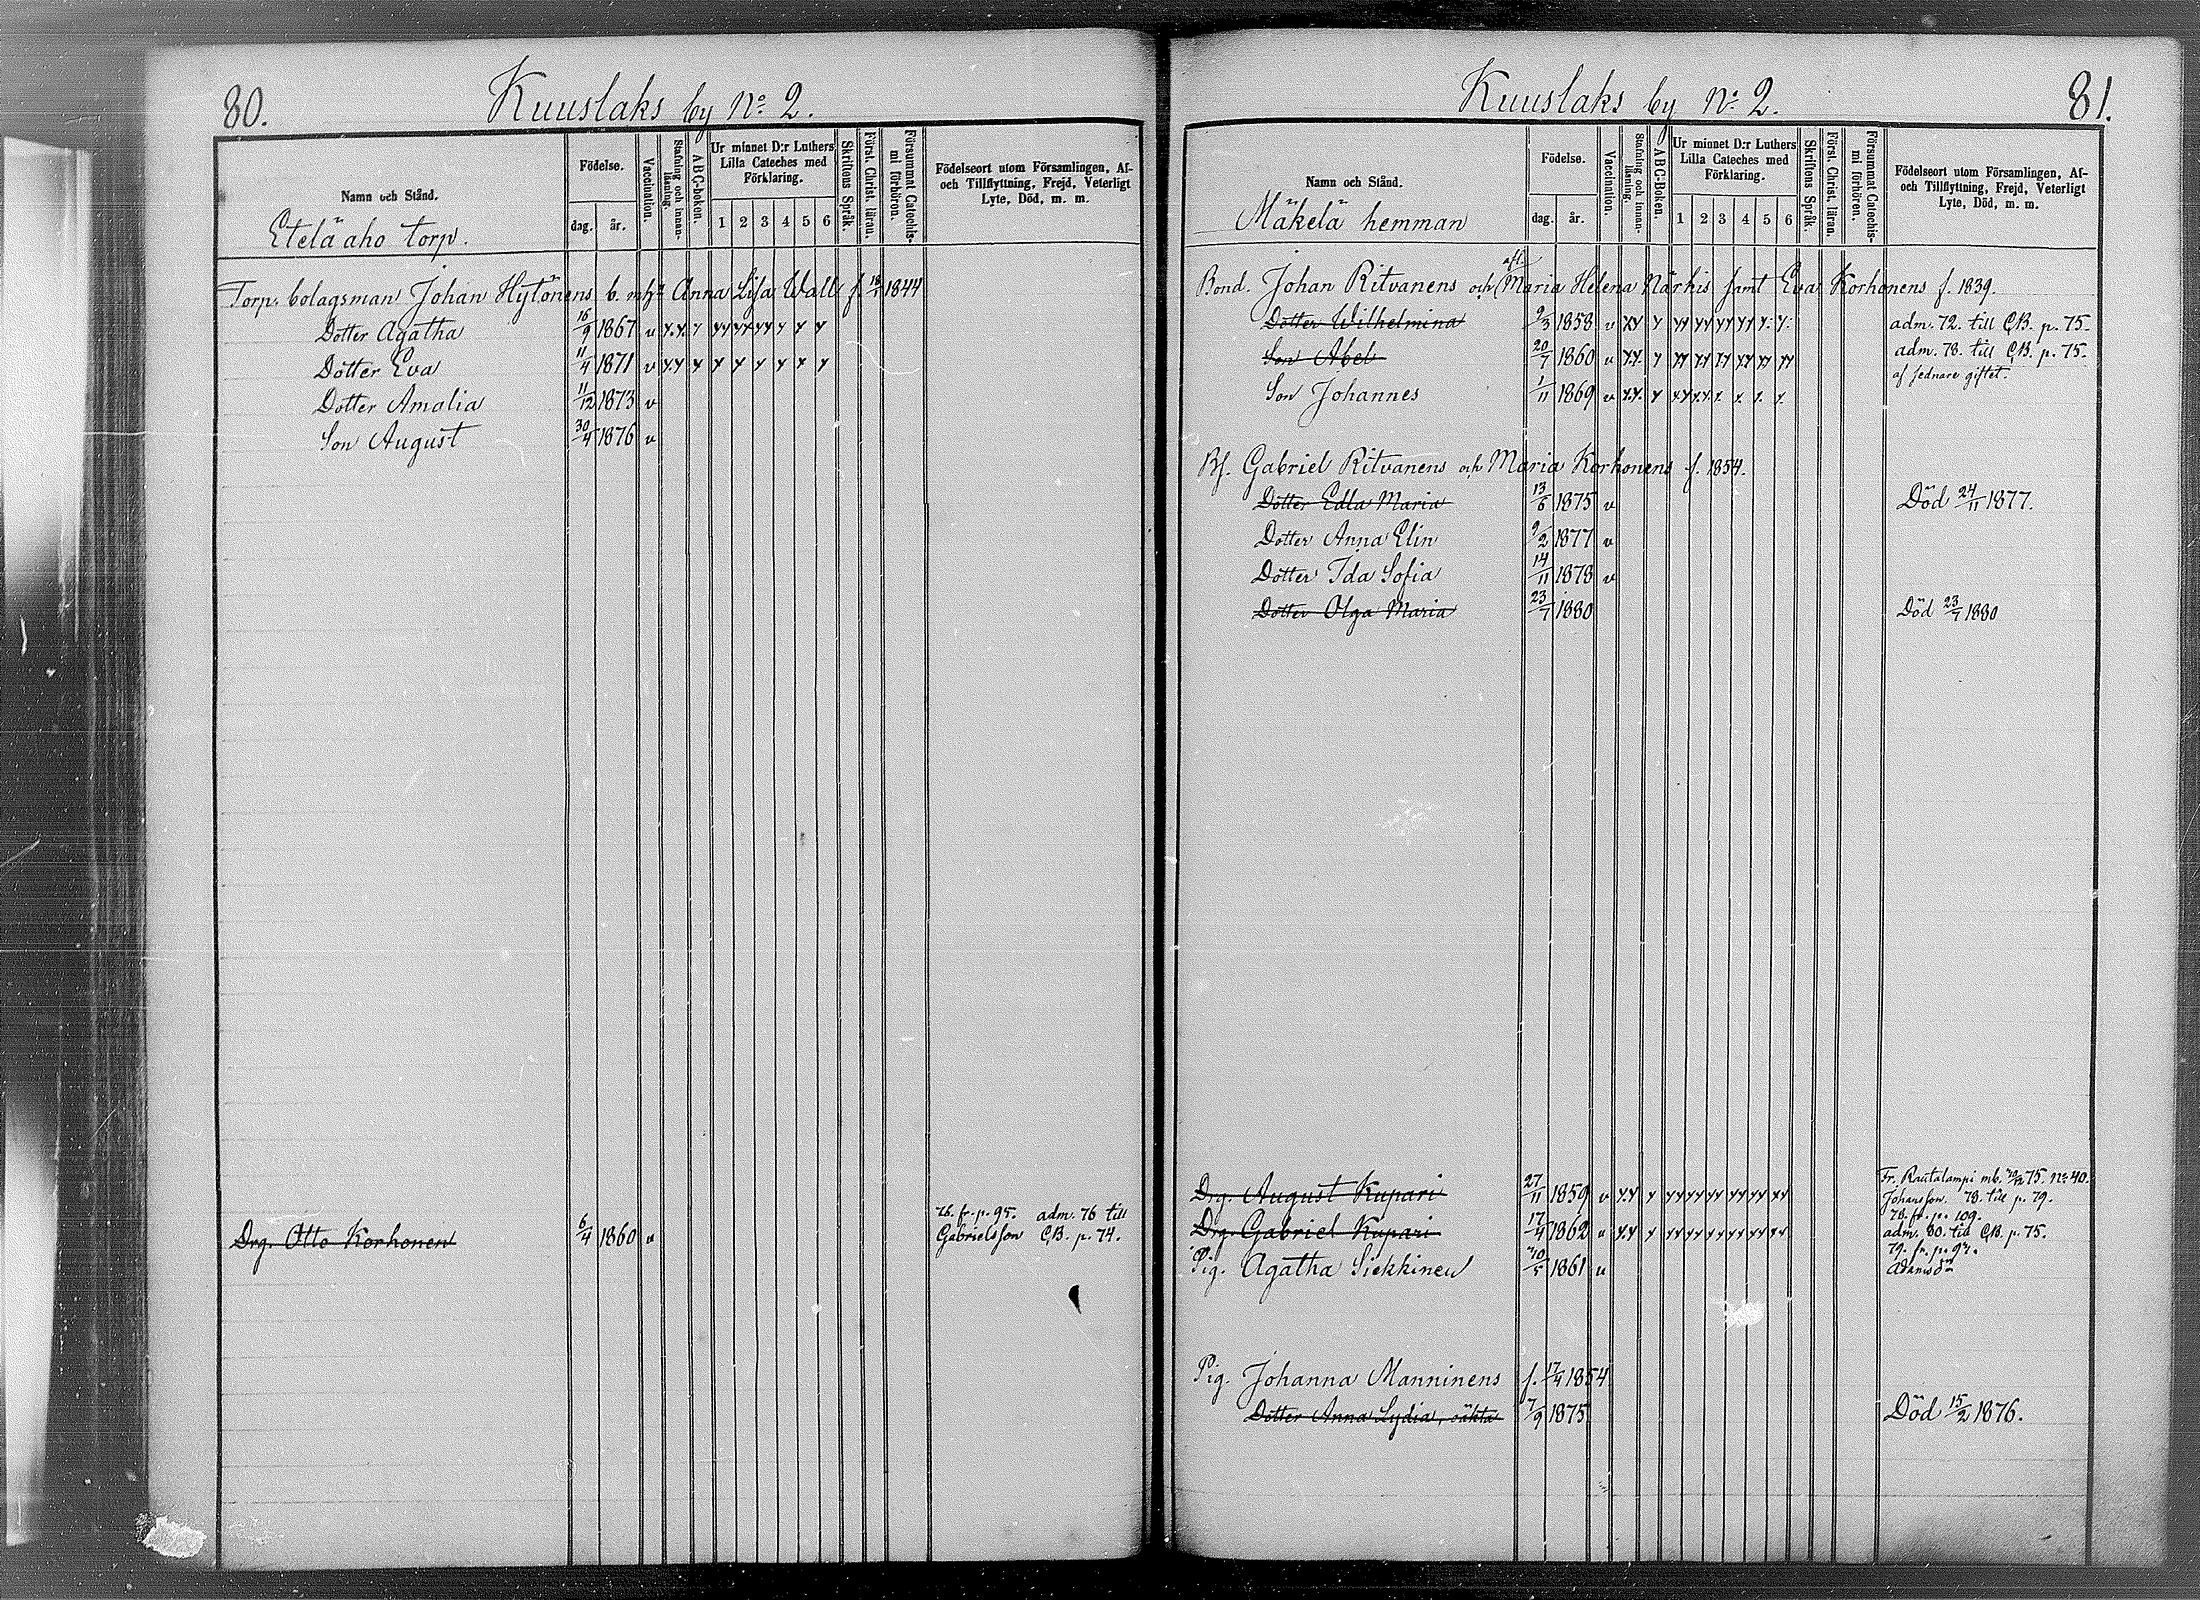 80.
Kuuslaks by No. 2.
Namn och Stånd.
Födelse.
dag. år.
Vaccination.
Stafning och innan-läsning.
A B C-boken.
Ur minnet D:r Luthers
Lilla Cateches med
Förklaring.
1 2 3 4 5 6
Skriftens Språk.
Först. Christ. läran.
Försummat Catechis-
mi förhören.
Födelseort utom Församlingen, Af-
och Tillflyttning, Frejd, Veterligt
Lyte, Död, m. m.
Eteläaho torp.
Torp. bolagsman Johan Hytönens b. m. h. Anna Lisa Wall f. 18/1 1844
Dotter Agatha 16/9 1867 v
Dotter Eva 11/4 1871 v
Dotter Amalia 11/12 1873 v
Son August 30/4 1876 v
76. fr. p. 95. adm. 76 till
Drg. Otto Korhonen 6/4 1860 v Gabrielsson C.B. p. 74.
Kuuslaks by No. 2.
81.
Namn och Stånd.
Födelse.
dag. år.
Vaccination.
Stafning och innan-läsning.
A B C-Boken.
Ur minnet D:r Luthers
Lilla Cateches med
Förklaring.
1 2 3 4 5 6
Skriftens Språk.
Först. Christ. läran.
Försummat Catechis-
mi förhören.
Födelseort utom Församlingen, Af-
och Tillflyttning, Frejd, Veterligt
Lyte, Död, m. m.
Mäkelä hemman
afl.
Bond. Johan Ritvanens och (Maria Helena Närhis samt Eva Korhonens f. 1839.
Dotter Wilhelmina 9/3 1858 v adm. 72. till C.B. p. 75.
Son Abel 20/7 1860 v adm. 78. till C.B. p. 75.
af sednare giftet.
Son Johannes 1/11 1869 v
Bf. Gabriel Ritvanens och Maria Korhonens f. 1854.
Dotter Edla Maria 13/6 1875 v Död 24/11 1877.
Dotter Anna Elin 9/2 1877 v
Dotter Ida Sofia 14/11 1878 v
Dotter Olga Maria 23/7 1880 Död 23/7 1880
Fr. Rautalampi mb. 75. No. 40.
Drg. August Kupari 27/11 1859 v Johansson. 78. till p. 79.
78. fr. p. 109.
Drg. Gabriel Kupari 17/4 1862 v adm. 80. till C.B. p. 75.
79. fr. p. 97.
Pig. Agatha Siekkinen 1861 v Adamsdr
Pig. Johanna Manninens f. 17/4 1854
Dotter Anna Lydia, oäkta 7/9 1875 Död 15/2 1876.